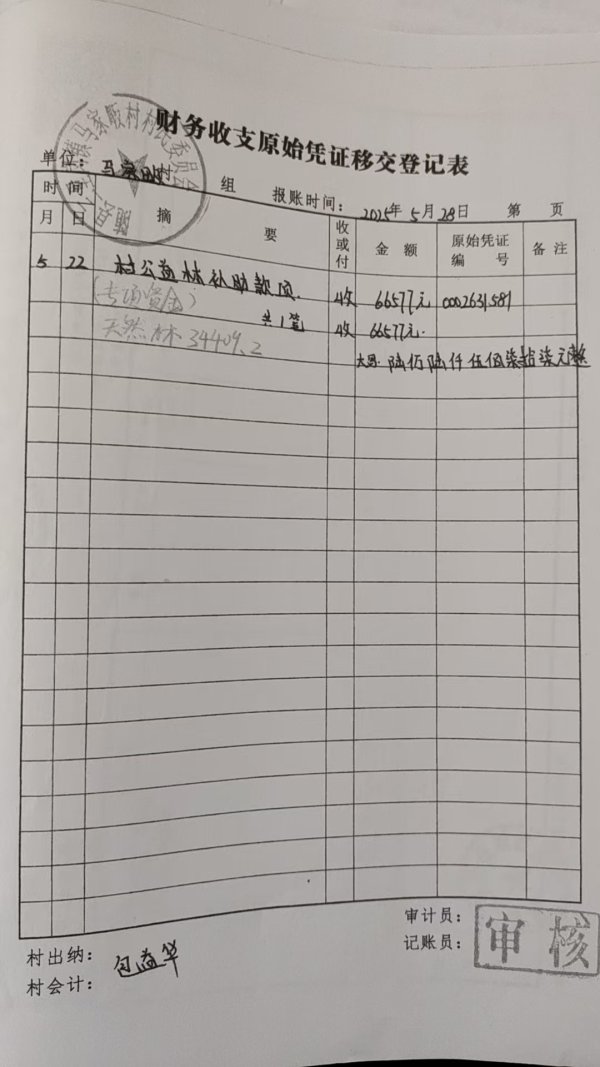 财务收支原始凭证移交登记表
马寨畈村村民委员会
单位: 马寨畈村 组 报账时间: 2025年5月28日 第 页
时间 摘要 收或付 金额 原始凭证编号 备注
月 日
5 22 村公益林补助款项 收 66577元 0002631581
(专项资金) 共1笔 收 66577元.
天然林 34409.2
大写: 陆万陆仟伍佰柒拾柒元整
审计员:
记账员: 审核
村出纳: 包益华
村会计: